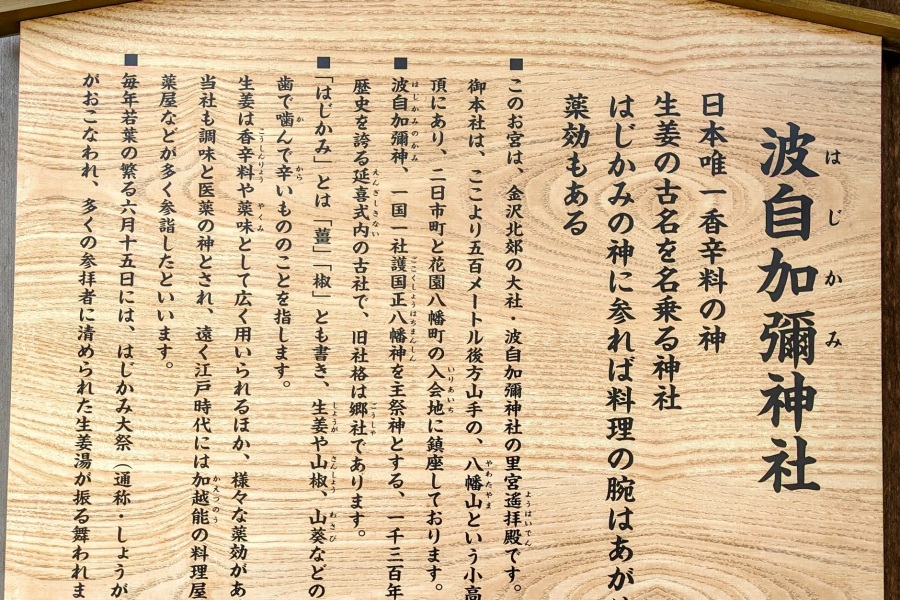 波自加彌神社
はじかみ
日本唯一香辛料の神
生姜の古名を名乗る神社
はじかみの神に参れば料理の腕はあが
薬効もある
■このお宮は、金沢北郊の大社・波自加彌神社の里宮遙拝殿です。
ようはいでん
御本社は、ここより五百メートル後方山手の、八幡山という小高
やわたやま
頂にあり、二日市町と花園八幡町の入会地に鎮座しております。
いりあいち
■波自加彌神、一国一社護国正八幡神を主祭神とする、一千三百年
はじかみのかみ
ごこくしょうはちまんしん
歴史を誇る延喜式内の古社で、旧社格は郷社であります。
えんぎしきない
ごうしゃ
■「はじかみ」とは「薑」「椒」とも書き、生姜や山椒、山葵などの
しょうが
さんしょう
わさび
歯で噛んで辛いもののことを指します。
か
から
生姜は香辛料や薬味として広く用いられるほか、様々な薬効があ
こうしんりょう
やくみ
当社も調味と医薬の神とされ、遠く江戸時代には加越能の料理屋
かえつのう
薬屋などが多く参詣したといいます。
■毎年若葉の繁る六月十五日には、はじかみ大祭（通称・しょうが
がおこなわれ、多くの参拝者に清められた生姜湯が振る舞われま